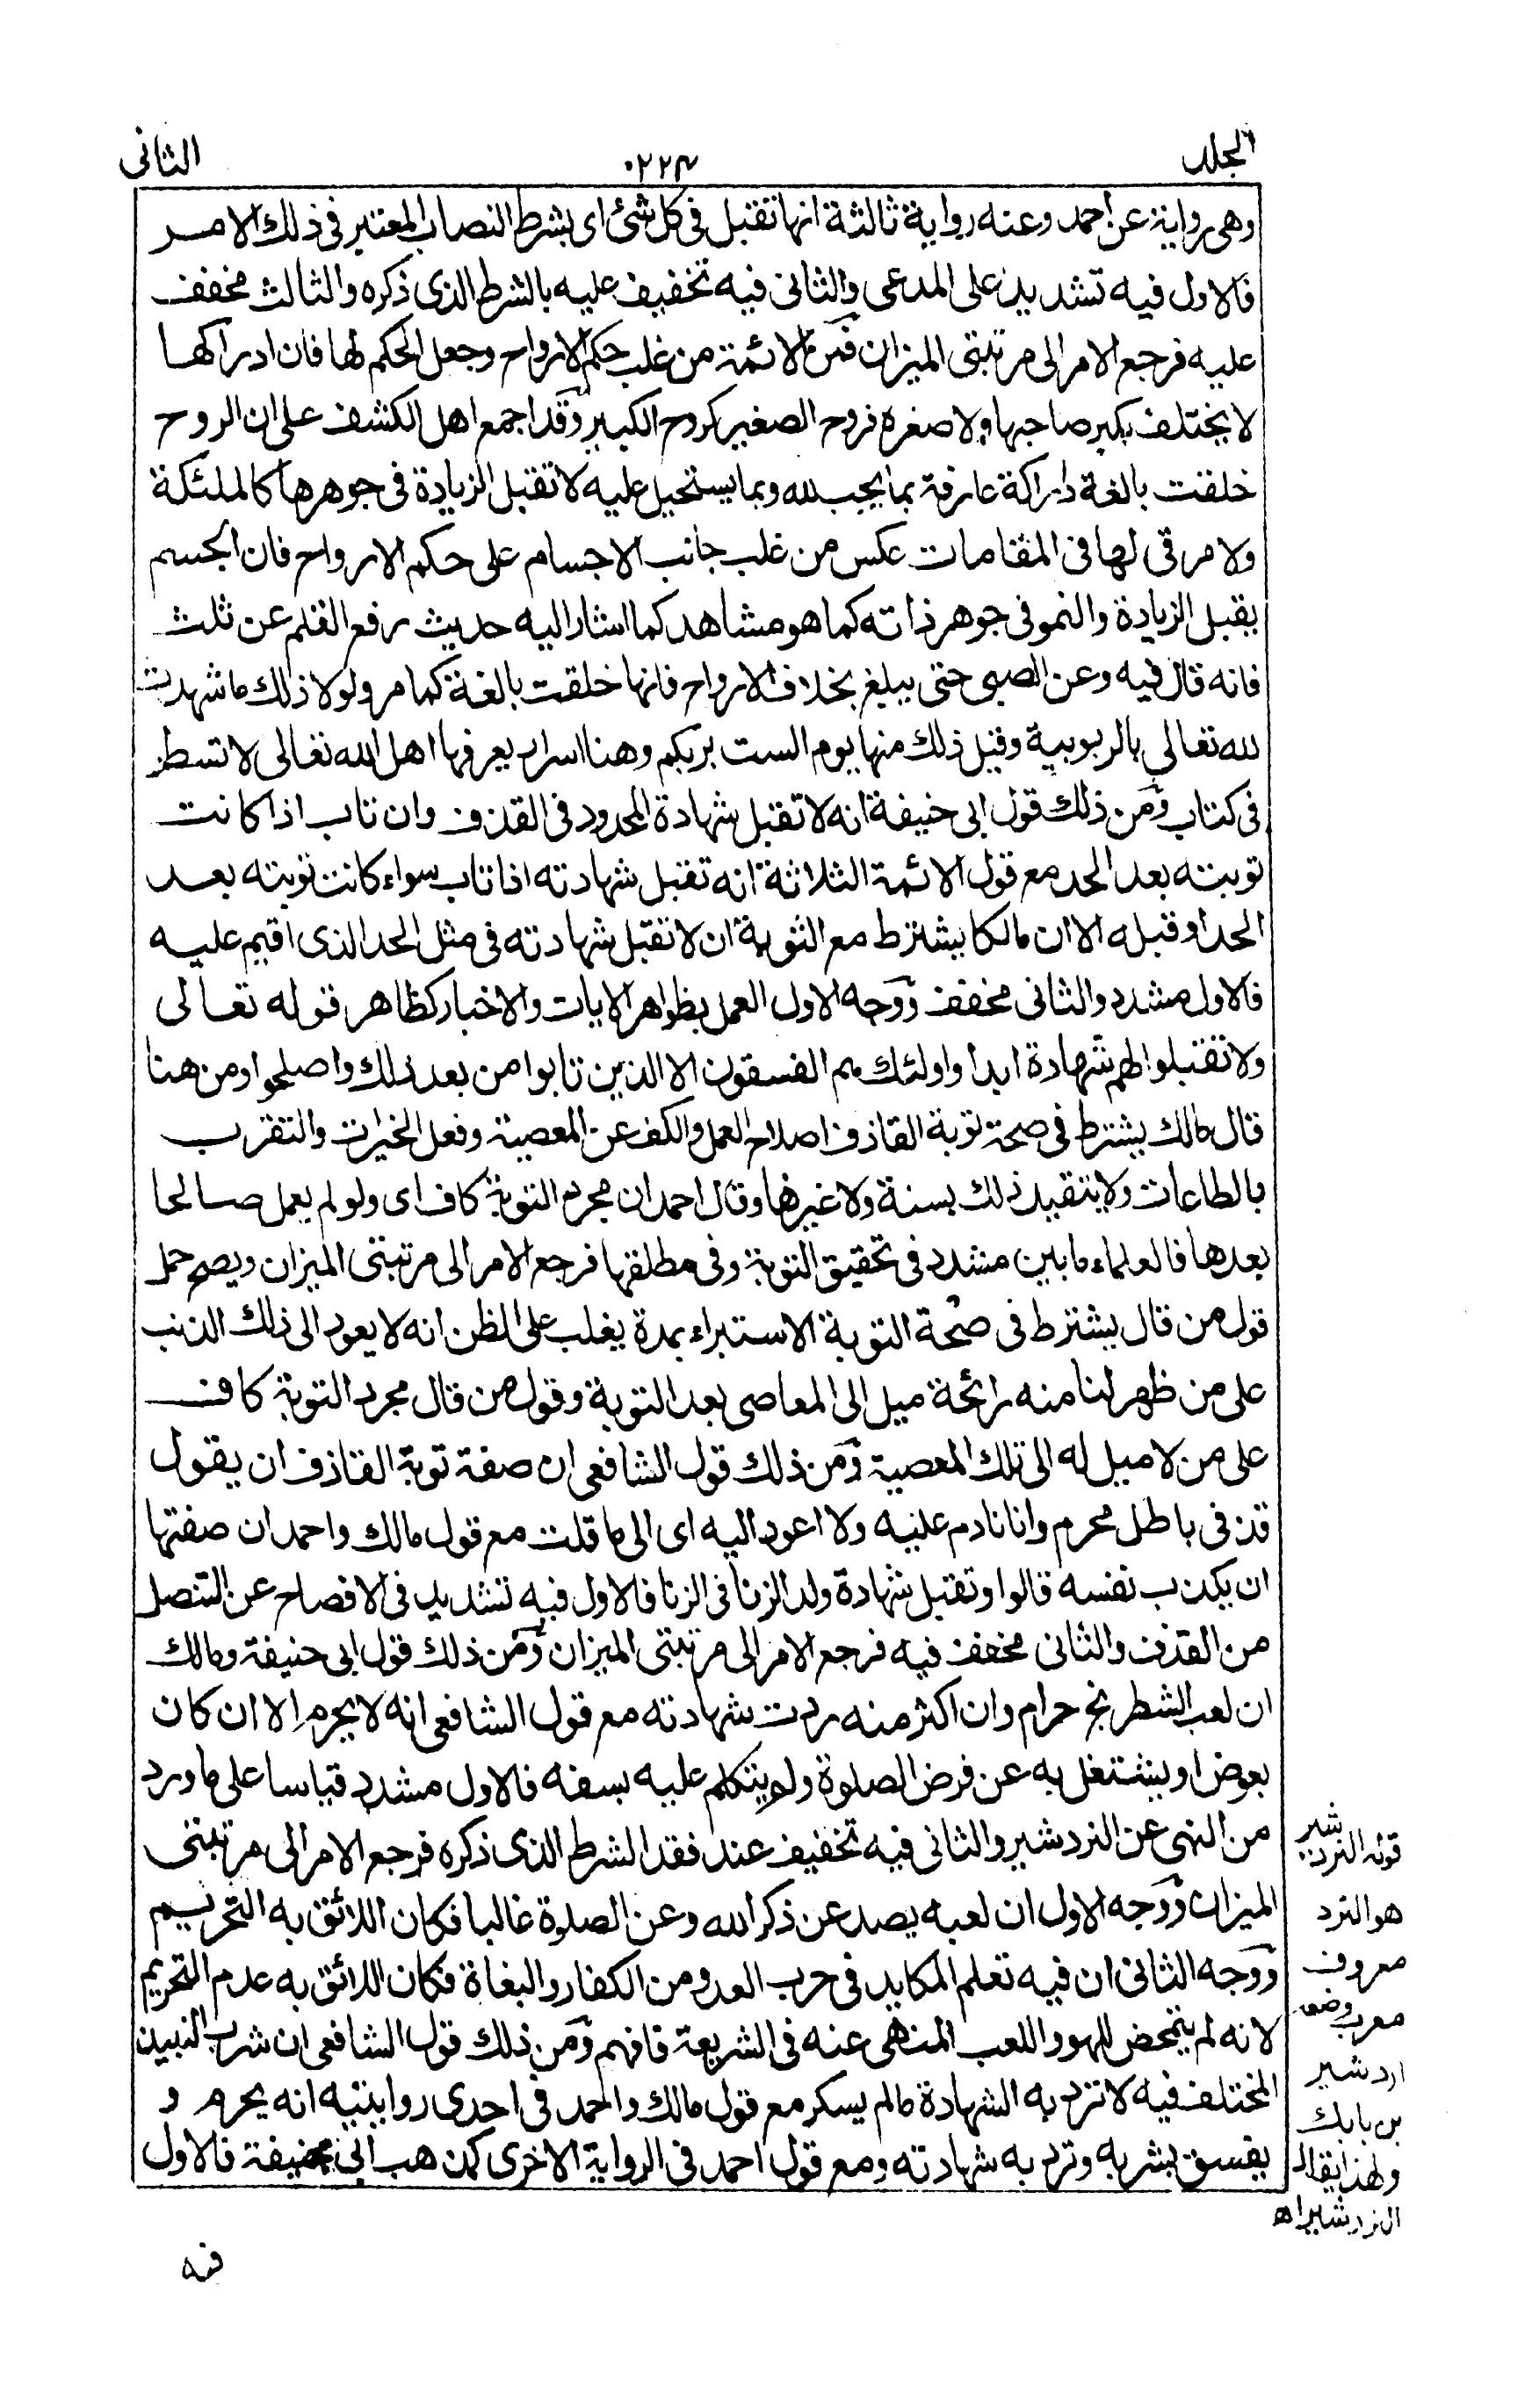 الجلد ٢٢٤ الثانى
وهى رواية عن احمد وعنه رواية ثالثة انها تقبل فى كل شئ اى بشرط النصاب المعتبر فى ذلك الامر
فالاول فيه تشديد على المدعى والثانى فيه تخفيف عليه بالشرط الذى ذكره والثالث مخفف
عليه فرجع الامر الى مرتبتى الميزان فمن الائمة من غلب حكم الارواح وجعل الحكم لها فان ادراكها
لا يختلف بكبر صاحبها ولا صغره فروح الصغير كروح الكبير وقد اجمع اهل الكشف على ان الروح
خلقت بالغة دراكة عارفة بما يجب لله وبما يستحيل عليه لا تقبل الزيادة فى جوهرها كالملئكة
ولا مرقى لها فى المقامات عكس من غلب جانب الاجسام على حكم الارواح فان الجسم
يقبل الزيادة والنمو فى جوهر ذاته كما هو مشاهد كما اشار اليه حديث رفع القلم عن ثلث
فانه قال فيه وعن الصبى حتى يبلغ بخلاف الارواح فانها خلقت بالغة كما مر ولولا ذلك ما شهدت
لله تعالى بالربوبية وقبل ذلك منها يوم الست بربكم وهنا اسرار يعرفها اهل الله تعالى لا تسطر
فى كتاب ومن ذلك قول ابى حنيفة انه لا تقبل شهادة المحدود فى القذف وان تاب اذا كانت
توبته بعد الحد مع قول الائمة الثلاثة انه تقبل شهادته اذا تاب سواء كانت توبته بعد
الحد او قبله الا ان مالكا يشترط مع التوبة ان لا تقبل شهادته فى مثل الحد الذى اقيم عليه
فالاول مشدد والثانى مخفف ووجه الاول العمل بظواهر الايات والاخبار كظاهر قوله تعالى
ولا تقبلوا لهم شهادة ابدا واولئك هم الفسقون الا الذين تابوا من بعد ذلك واصلحوا ومن هنا
قال مالك يشترط فى صحة توبة القاذف اصلاح العمل والكف عن المعصية وفعل الخيرات والتقرب
بالطاعات ولا يتقيد ذلك بسنة ولا غيرها وقال احمد ان مجرد التوبة كاف اى ولو لم يعمل صالحا
بعدها فالعلماء ما بين مشدد فى تحقيق التوبة وفى مطلقها فرجع الامر الى مرتبتى الميزان ويصح حمل
قول من قال يشترط فى صحة التوبة الاستبراء بمدة يغلب على الظن انه لا يعود الى ذلك الذنب
على من ظهر لنا منه رائحة ميل الى المعاصى بعد التوبة وقول من قال مجرد التوبة كاف
على من لا ميل له الى تلك المعصية ومن ذلك قول الشافعى ان صفة توبة القاذف ان يقول
قذفى باطل محرم وانا نادم عليه ولا اعود اليه اى الى ما قلت مع قول مالك واحمد ان صفتها
ان يكذب نفسه قالوا وتقبل شهادة ولد الزنا فى الزنا فالاول فيه تشديد فى الافصاح عن التنصل
من القذف والثانى مخفف فيه فرجع الامر الى مرتبتى الميزان ومن ذلك قول ابى حنيفة ومالك
ان لعب الشطرنج حرام وان اكثر منه ردت شهادته مع قول الشافعى انه لا يحرم الا ان كان
بعوض او يشتغل به عن فرض الصلوة ولم يتكلم عليه بسفه فالاول مشدد قياسا على ما ورد
من النهى عن النردشير والثانى فيه تخفيف عند فقد الشرط الذى ذكره فرجع الامر الى مرتبتى
الميزان ووجه الاول ان لعبه يصد عن ذكر الله وعن الصلوة غالبا فكان اللائق به التحريم
ووجه الثانى ان فيه تعلم المكايد فى حرب العدو من الكفار والبغاة فكان اللائق به عدم التحريم
لانه لم يتمحض للهو واللعب المنهى عنه فى الشريعة فافهم ومن ذلك قول الشافعى ان شرب النبيذ
المختلف فيه لا ترد به الشهادة ما لم يسكر مع قول مالك واحمد فى احدى روايتيه انه يحرم و
يفسق بشربه وترد به شهادته ومع قول احمد فى الرواية الاخرى كمذهب ابى حنيفة فالاول
قوله النردشير
هو النرد
معروف
معرب وضعه
اردشير
بن بابك
ولهذا يقال
النردشير اه
فيه